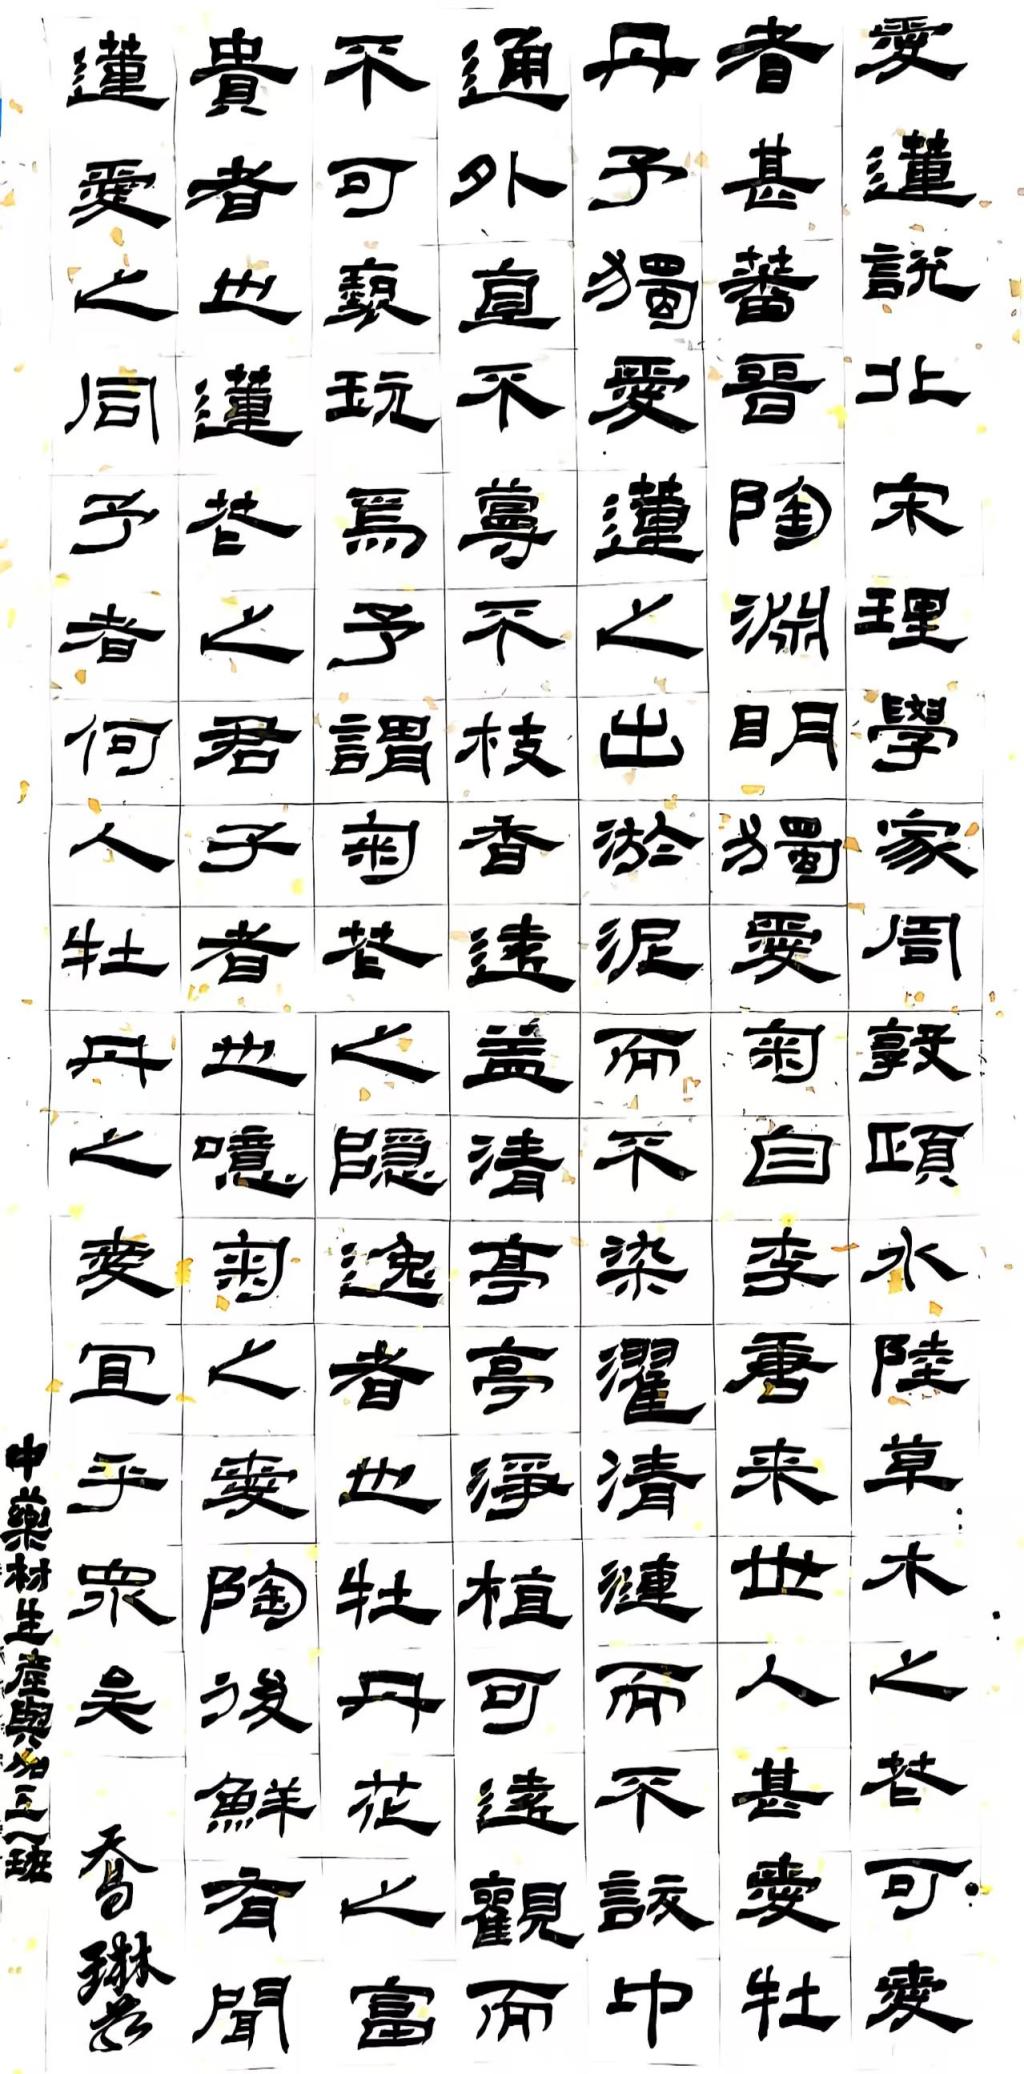 愛蓮說北宋理學家周敦頤水陸草木之花可愛
者甚蕃晉陶淵明獨愛菊自李唐来世人甚愛牡
丹予獨愛蓮之出淤泥而不染濯清漣而不訞中
通外直不蔓不枝香遠盖清亭亭淨植可遠觀而
不可褻玩焉予謂菊花之隱逸者也牡丹花之富
貴者也蓮花之君子者也噫菊之愛陶後鮮有聞
蓮愛之同予者何人牡丹之愛宜乎眾矣 喬琳
中藥材生產與加班